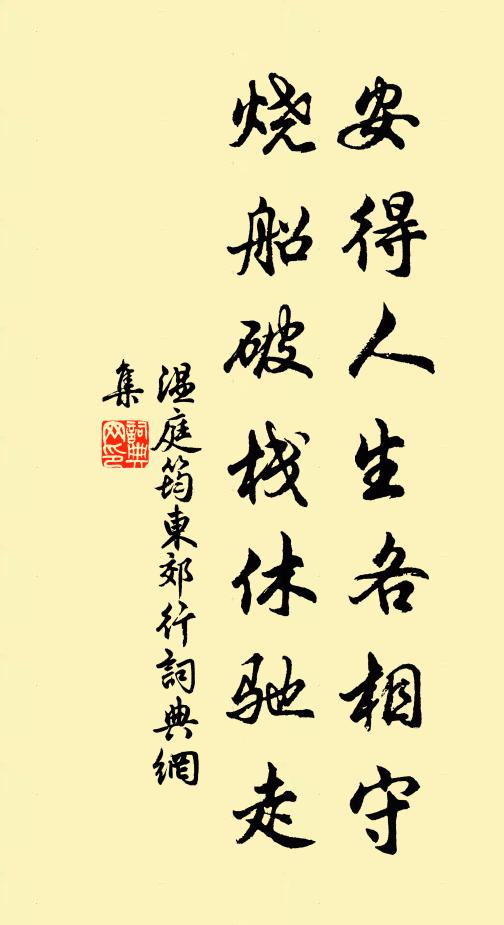 安得人生各相守
烧船破栈休驰走
温庭筠東郊行詞典網
集
詞典網印